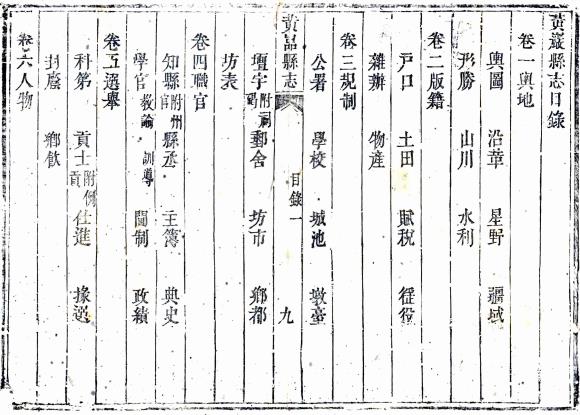 黃巖縣志目錄
卷一輿地
輿圖 沿革 星野 疆域
形勝 山川 水利
卷二版籍
戸口 土田 賦稅 徭役
雜辦 物產
卷三規制
公署 學校 城池 墩臺
黃嵒縣志 目錄一 九
壇宇附祠 郵舍 坊市 鄉都
坊表
卷四職官
知縣附州官 縣丞 主簿 典史
學官教諭 訓導 閫制 政績
卷五選舉
科第 貢士附例貢 仕進 掾選
封廕 鄉飲
卷六人物